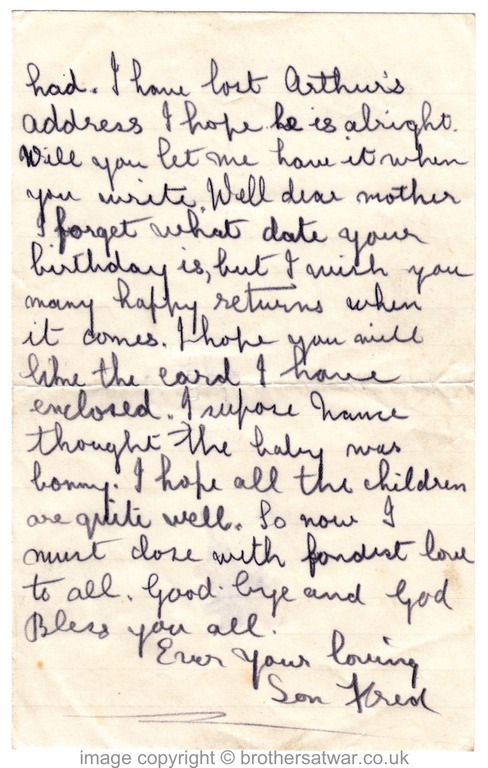 had. I have lost Arthur's
address I hope he is alright.
Will you let me have it when
you write. Well dear mother
I forget what date your
birthday is, but I wish you
many happy returns when
it comes. I hope you will
like the card I have
enclosed. I supose Nance
thought the baby was
bonny. I hope all the children
are quite well. So now I
must close with fondest love
to all. Good-bye and God
Bless you all.
Ever Your loving
Son Fred
image copyright © brothersatwar.co.uk